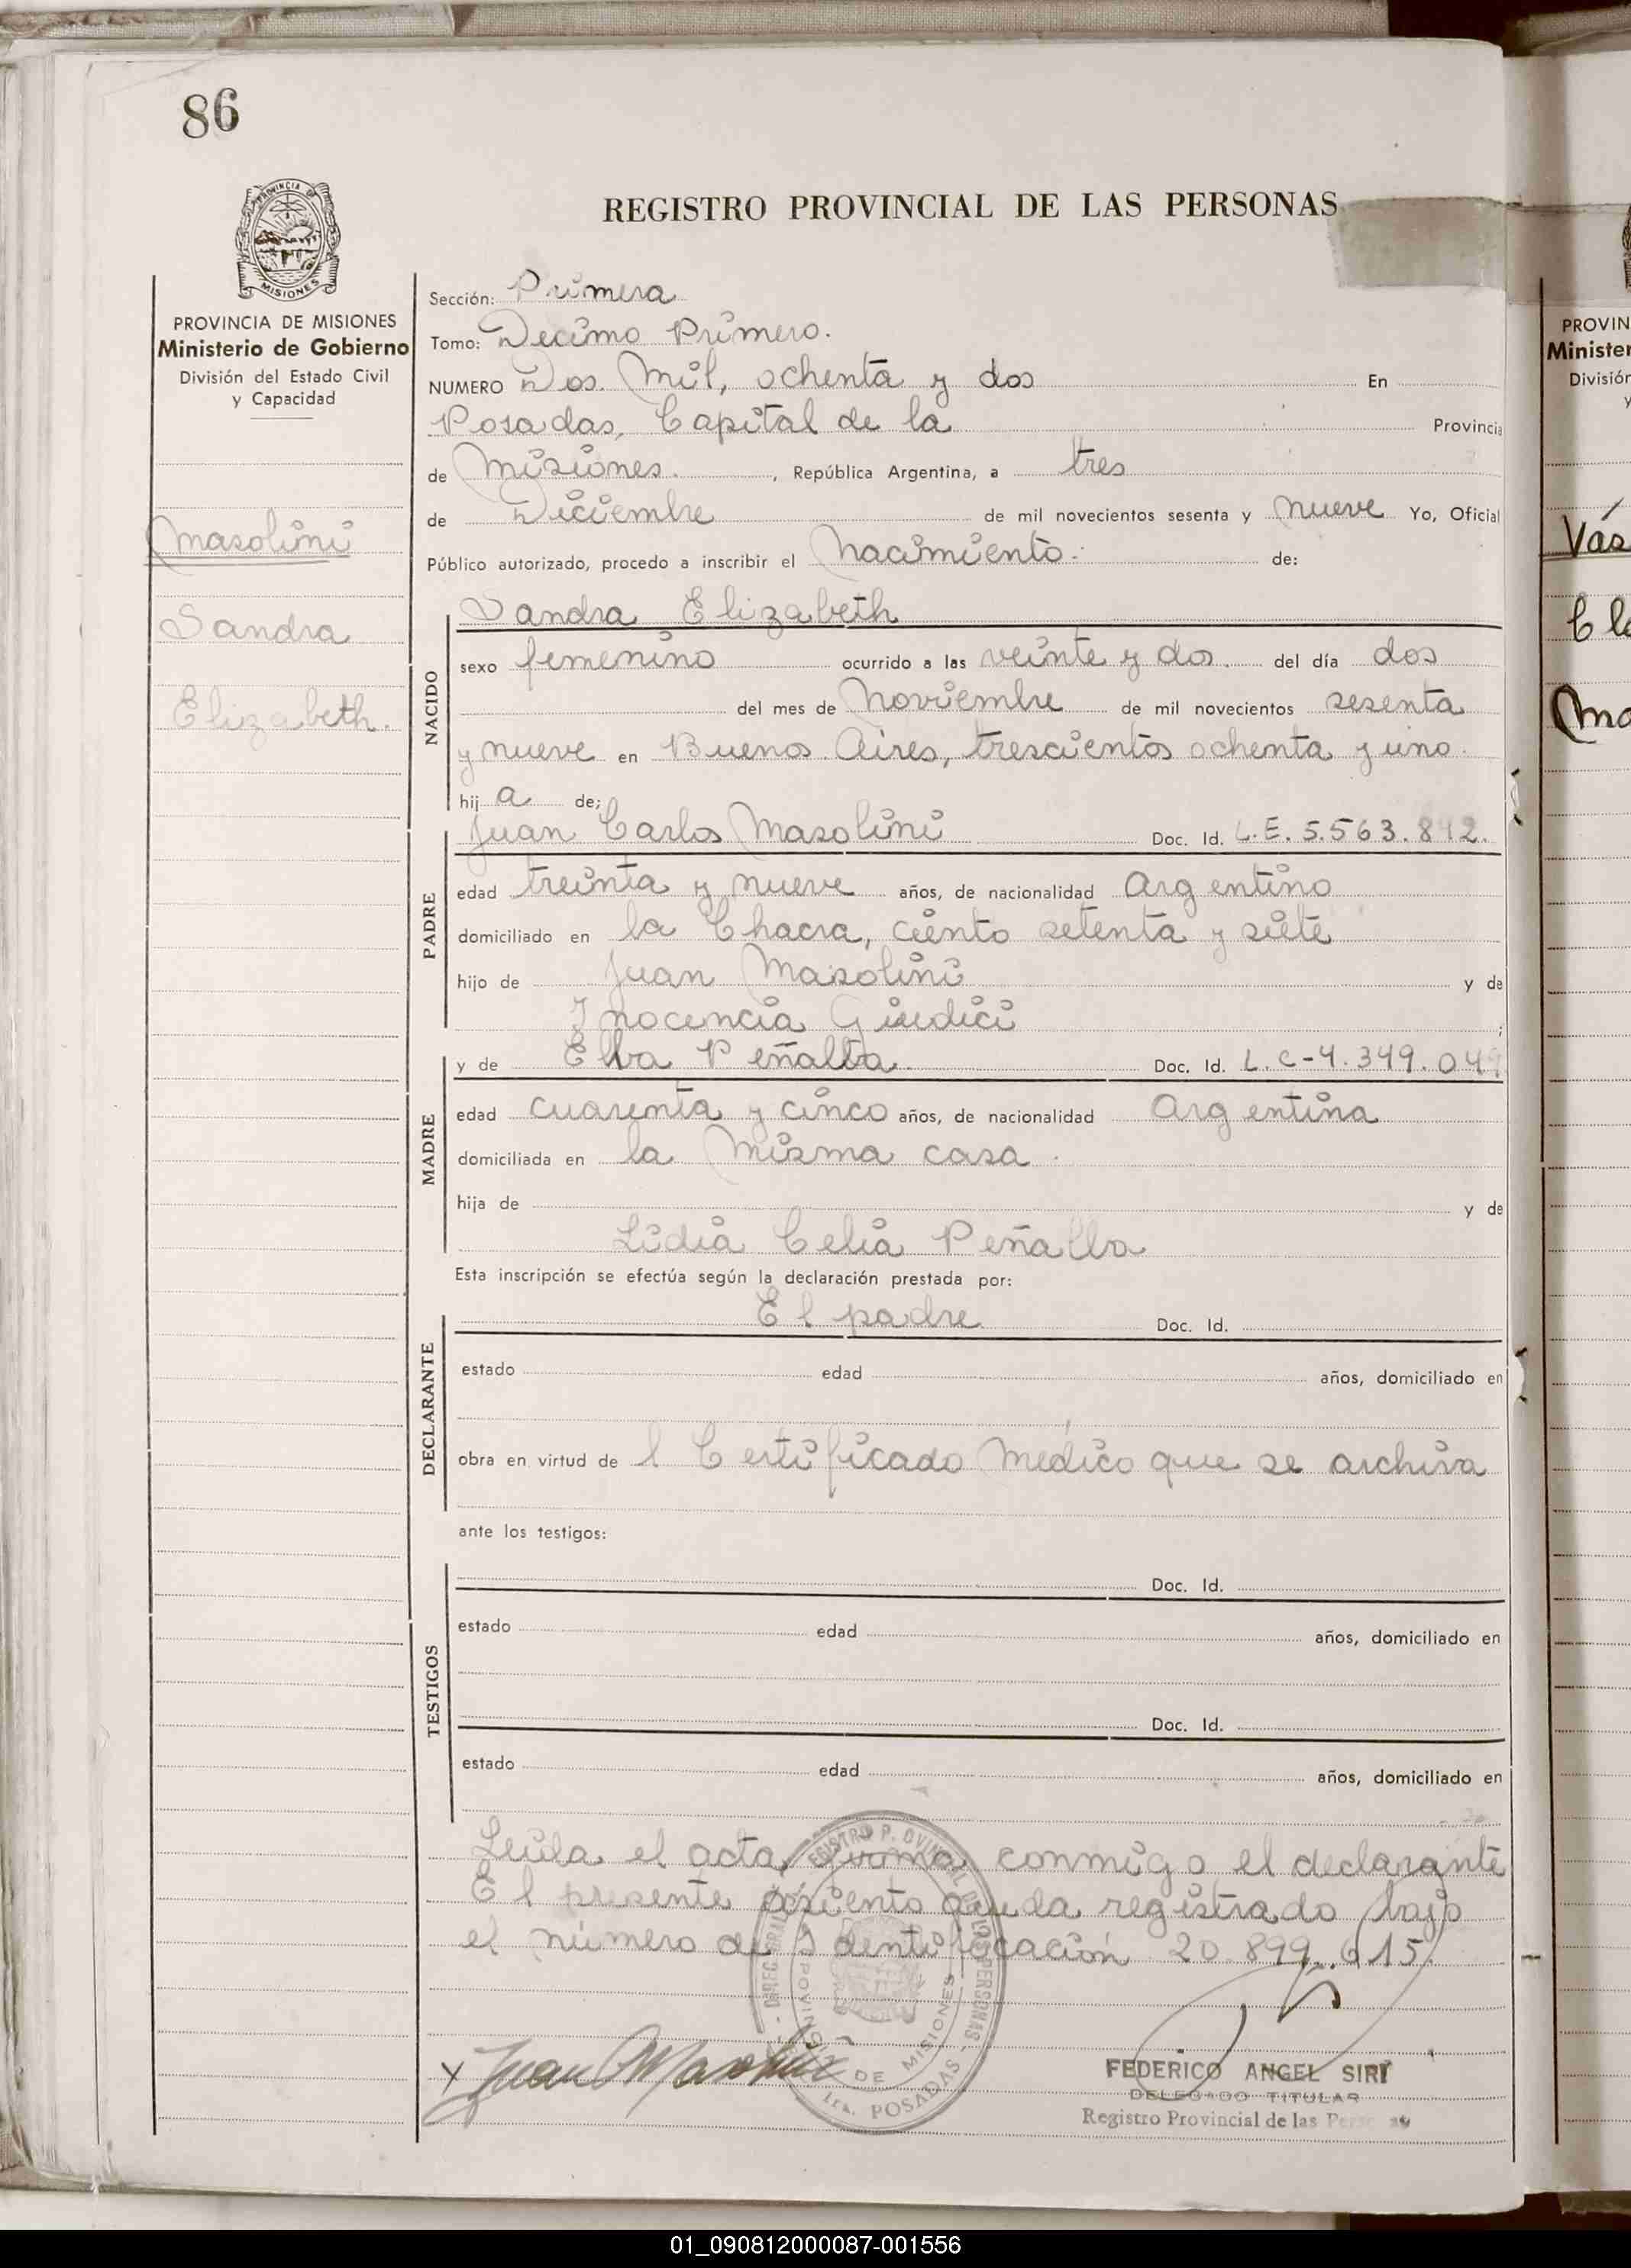 86
REGISTRO PROVINCIAL DE LAS PERSONAS
PROVINCIA DE MISIONES
Ministerio de Gobierno
División del Estado Civil
y Capacidad
Masolini
Sandra
Elizabeth.
Sección: Primera
Tomo: Decimo Primero.
NUMERO Dos. Mil, ochenta y dos En
Posadas, Capital de la Provincia
de Misiones. , República Argentina, a tres
de Diciembre de mil novecientos sesenta y nueve Yo, Oficial
Público autorizado, procedo a inscribir el Nacimiento. de:
NACIDO
Sandra Elizabeth
sexo femenino ocurrido a las veinte y dos. del día dos
del mes de Noviembre de mil novecientos sesenta
y nueve en Buenos Aires, trescientos ochenta y uno.
hij a de;
PADRE
Juan Carlos Masolini Doc. Id. L.E. 5.563.842.
edad treinta y nueve años, de nacionalidad Argentino
domiciliado en la Chacra, ciento setenta y siete
hijo de Juan Masolini y de
Inocencia Giudici ;
MADRE
y de Elba Peñalba. Doc. Id. L.C-4.349.049
edad cuarenta y cinco años, de nacionalidad Argentina
domiciliada en la Misma casa.
hija de y de
Lidia Celia Peñalba
Esta inscripción se efectúa según la declaración prestada por:
DECLARANTE
El padre Doc. Id.
estado edad años, domiciliado en
obra en virtud de l Certificado Médico que se archiva
ante los testigos:
TESTIGOS
Doc. Id.
estado edad años, domiciliado en
Doc. Id.
estado edad años, domiciliado en
Leida el acta, firma conmigo el declarante
El presente asiento queda registrado bajo
el número de Identificación 20.899.615.
PROVINCIA DE MISIONES
POSADAS
Juan C Masolini
FEDERICO ANGEL SIRI
DELEGADO TITULAR
Registro Provincial de las Personas
PROVIN
Minister
División
y
Vás
Cla
Ma
01_090812000087-001556